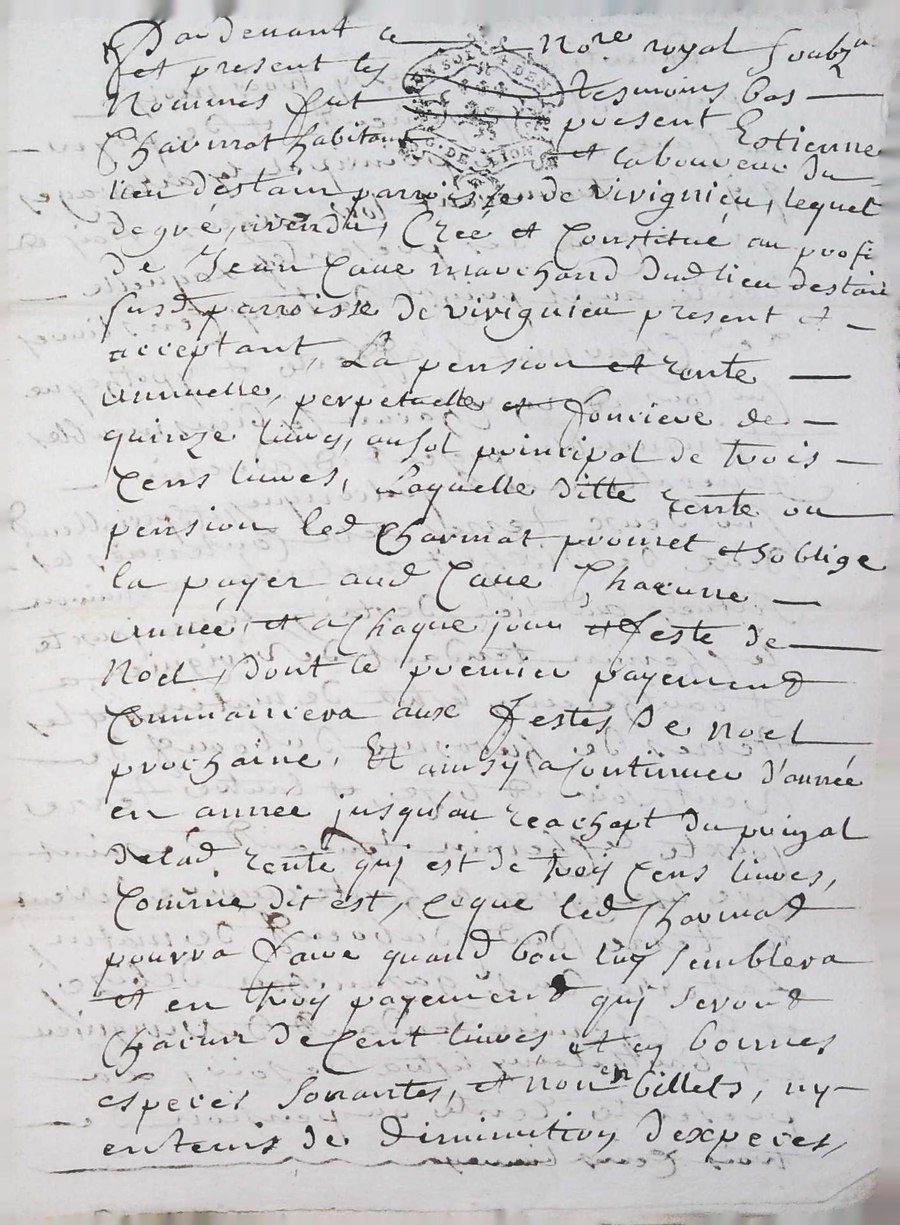 Pardevant le Nore royal Soubzne
et present les tesmoins bas
Nommés fut present Estienne
Charmat habitant et laboureur du
lieu destain parroisse de vivignieu, lequel
de gré, avendu, Créé et Constitué au profi
de Jean Caue marchand dud lieu destain
susd parroisse de vivignieu present et
acceptant, La pension et rente
annuelle, perpetuelle et fonciere de
quinze livres, au sol principal de trois
Cens livres, Laquelle ditte rente ou
pension led Charmat promet et soblige
la payer aud Caue Chacune
année, et a Chaque jour et feste de
Noel, dont le premier payement
Commancera aux festes de noel
prochaine, Et ainsy a Continuer d'année
en année jusqu'au reachapt du prinzal
delad. rente qui est de troij Cens livres,
Comme dit est, ce que led Charmat
pourra faire quand bon luy semblera
et en troij payement qui seront
Chacun de Cent livres et en bonnes
especes sonantes, et non en billets, ny
en tems de diminution dexpeces,